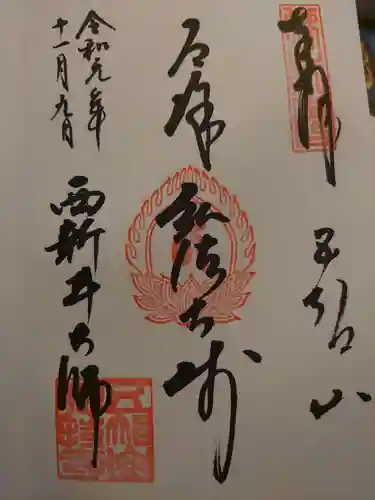 奉拝
五智山
厄除
弘法大師
令和元年
十一月九日
西新井大師